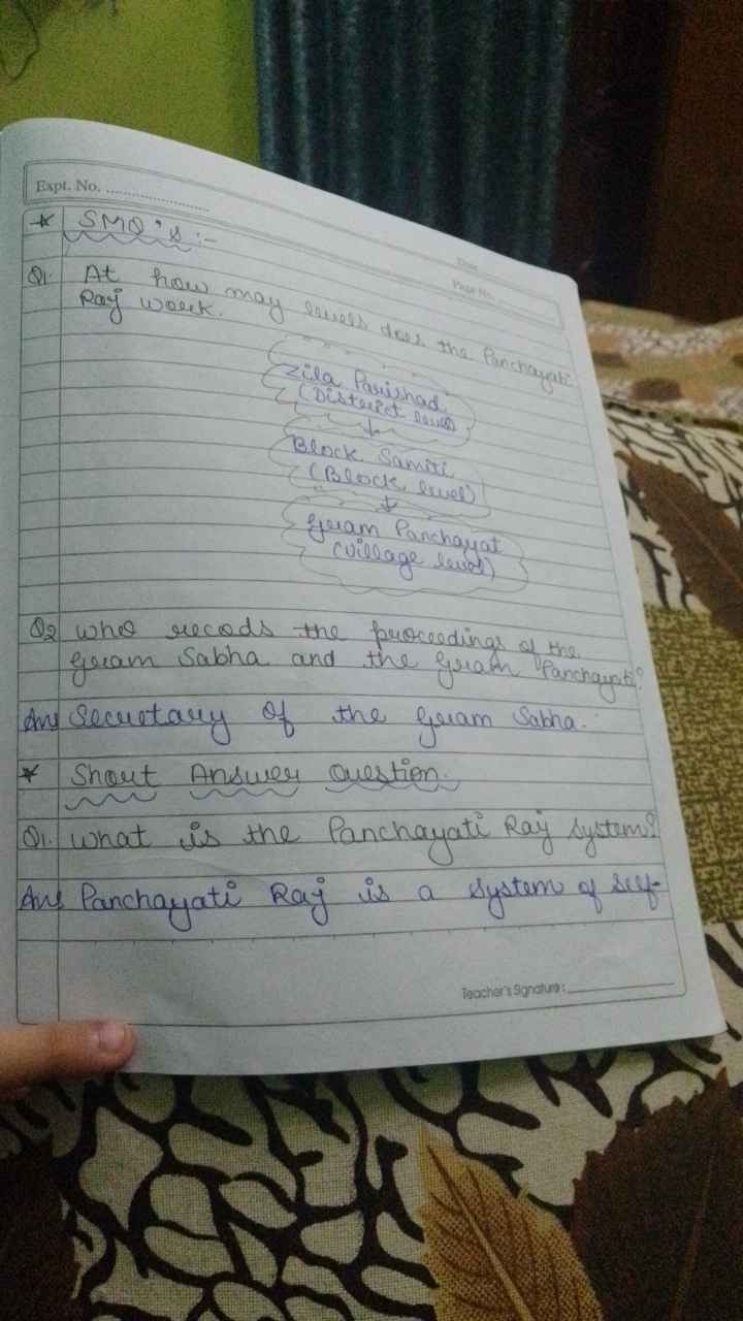 Expt. No.
Date
Page No.
* SMQ's :-
Q1. At how may levels does the Panchayati
Raj work.
Zila Parishad
(District level)
↓
Block Samiti
(Block level)
↓
Gram Panchayat
(Village level)
Q2 who recods the proceedings of the
Gram Sabha and the Gram Panchayati?
Ans Secretary of the Gram Sabha.
* Short Answer Question.
Q1. What is the Panchayati Raj System?
Ans Panchayati Raj is a system of self-
Teacher's Signature :